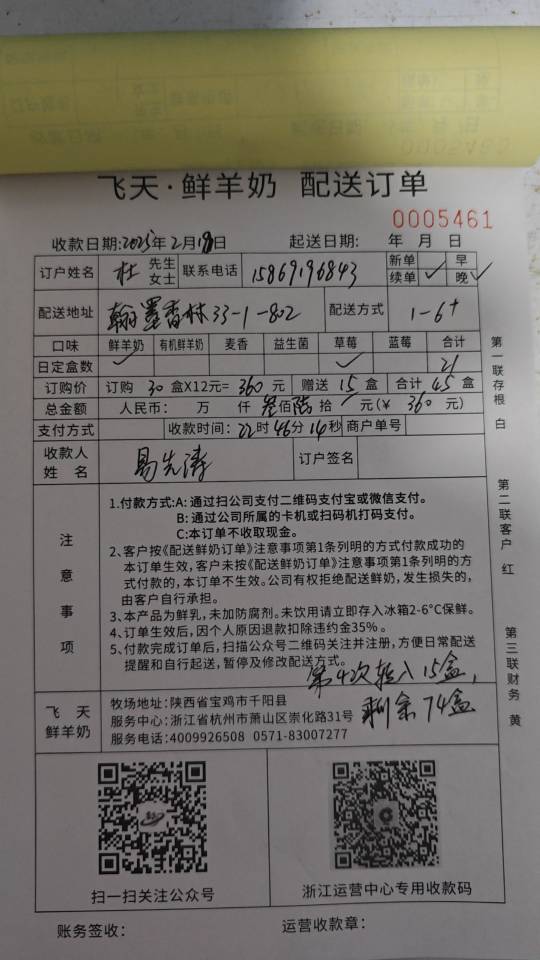 飞天·鲜羊奶 配送订单
0005461
收款日期:2025年2月18日 起送日期: 年 月 日
订户姓名 杜 先生 女士 联系电话 15869196843 新单 早 续单 ✓ 晚 ✓
配送地址 翰墨香林33-1-802 配送方式 1-6
口味 鲜羊奶 有机鲜羊奶 麦香 益生菌 草莓 蓝莓 合计
日定盒数 ✓ ✓ 21
订购价 订购 30 盒X12元= 360 元 赠送 15 盒 合计 45 盒
总金额 人民币: 万 仟 叁佰陆拾 元(¥ 360 元)
支付方式 收款时间: 22时46分14秒 商户单号
收款人姓名 易先涛 订户签名
注意事项
1.付款方式:A: 通过扫公司支付二维码支付宝或微信支付。
B: 通过公司所属的卡机或扫码机打码支付。
C:本订单不收取现金。
2、客户按《配送鲜奶订单》注意事项第1条列明的方式付款成功的
本订单生效，客户未按《配送鲜奶订单》注意事项第1条列明的方
式付款的，本订单不生效。公司有权拒绝配送鲜奶，发生损失的，
由客户自行承担。
3、本产品为鲜乳，未加防腐剂。未饮用请立即存入冰箱2-6°C保鲜。
4、订单生效后，因个人原因退款扣除违约金35%。
5、付款完成订单后，扫描公众号二维码关注并注册，方便日常配送
提醒和自行起送，暂停及修改配送方式。
第4次转入15盒，
剩余74盒
飞天鲜羊奶
牧场地址:陕西省宝鸡市千阳县
服务中心:浙江省杭州市萧山区崇化路31号
服务电话:4009926508 0571-83007277
扫一扫关注公众号 浙江运营中心专用收款码
账务签收: 运营收款章:
第一联存根 白
第二联客户 红
第三联财务 黄